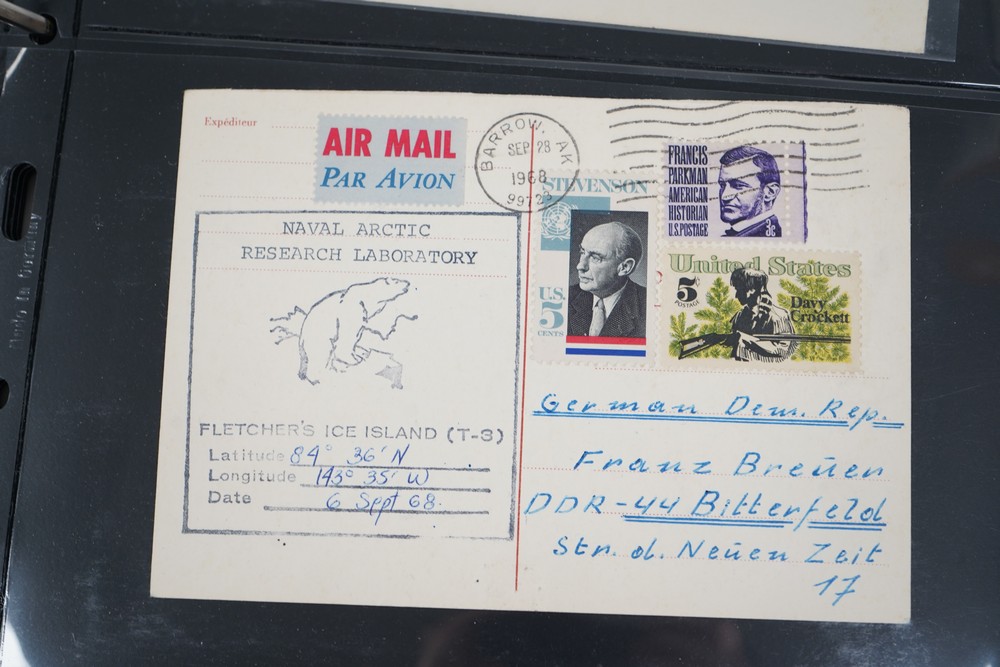 Expéditeur
AIR MAIL
PAR AVION
BARROW, AK
SEP 28
1968
9972
STEVENSON
U.S.
5
CENTS
FRANCIS
PARKMAN
AMERICAN
HISTORIAN
U.S. POSTAGE
3c
United States
5c
POSTAGE
Davy
Crockett
NAVAL ARCTIC
RESEARCH LABORATORY
FLETCHER'S ICE ISLAND (T-3)
Latitude 84° 36' N
Longitude 143° 35' W
Date 6 Sept 68.
German Dem. Rep.
Franz Breuer
DDR-44 Bitterfeld
Str. d. Neuen Zeit
17